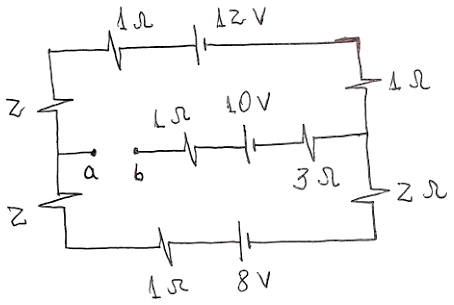 1Ω 12V
2 1Ω
1Ω 10V
a b 3Ω
2 2Ω
1Ω 8V